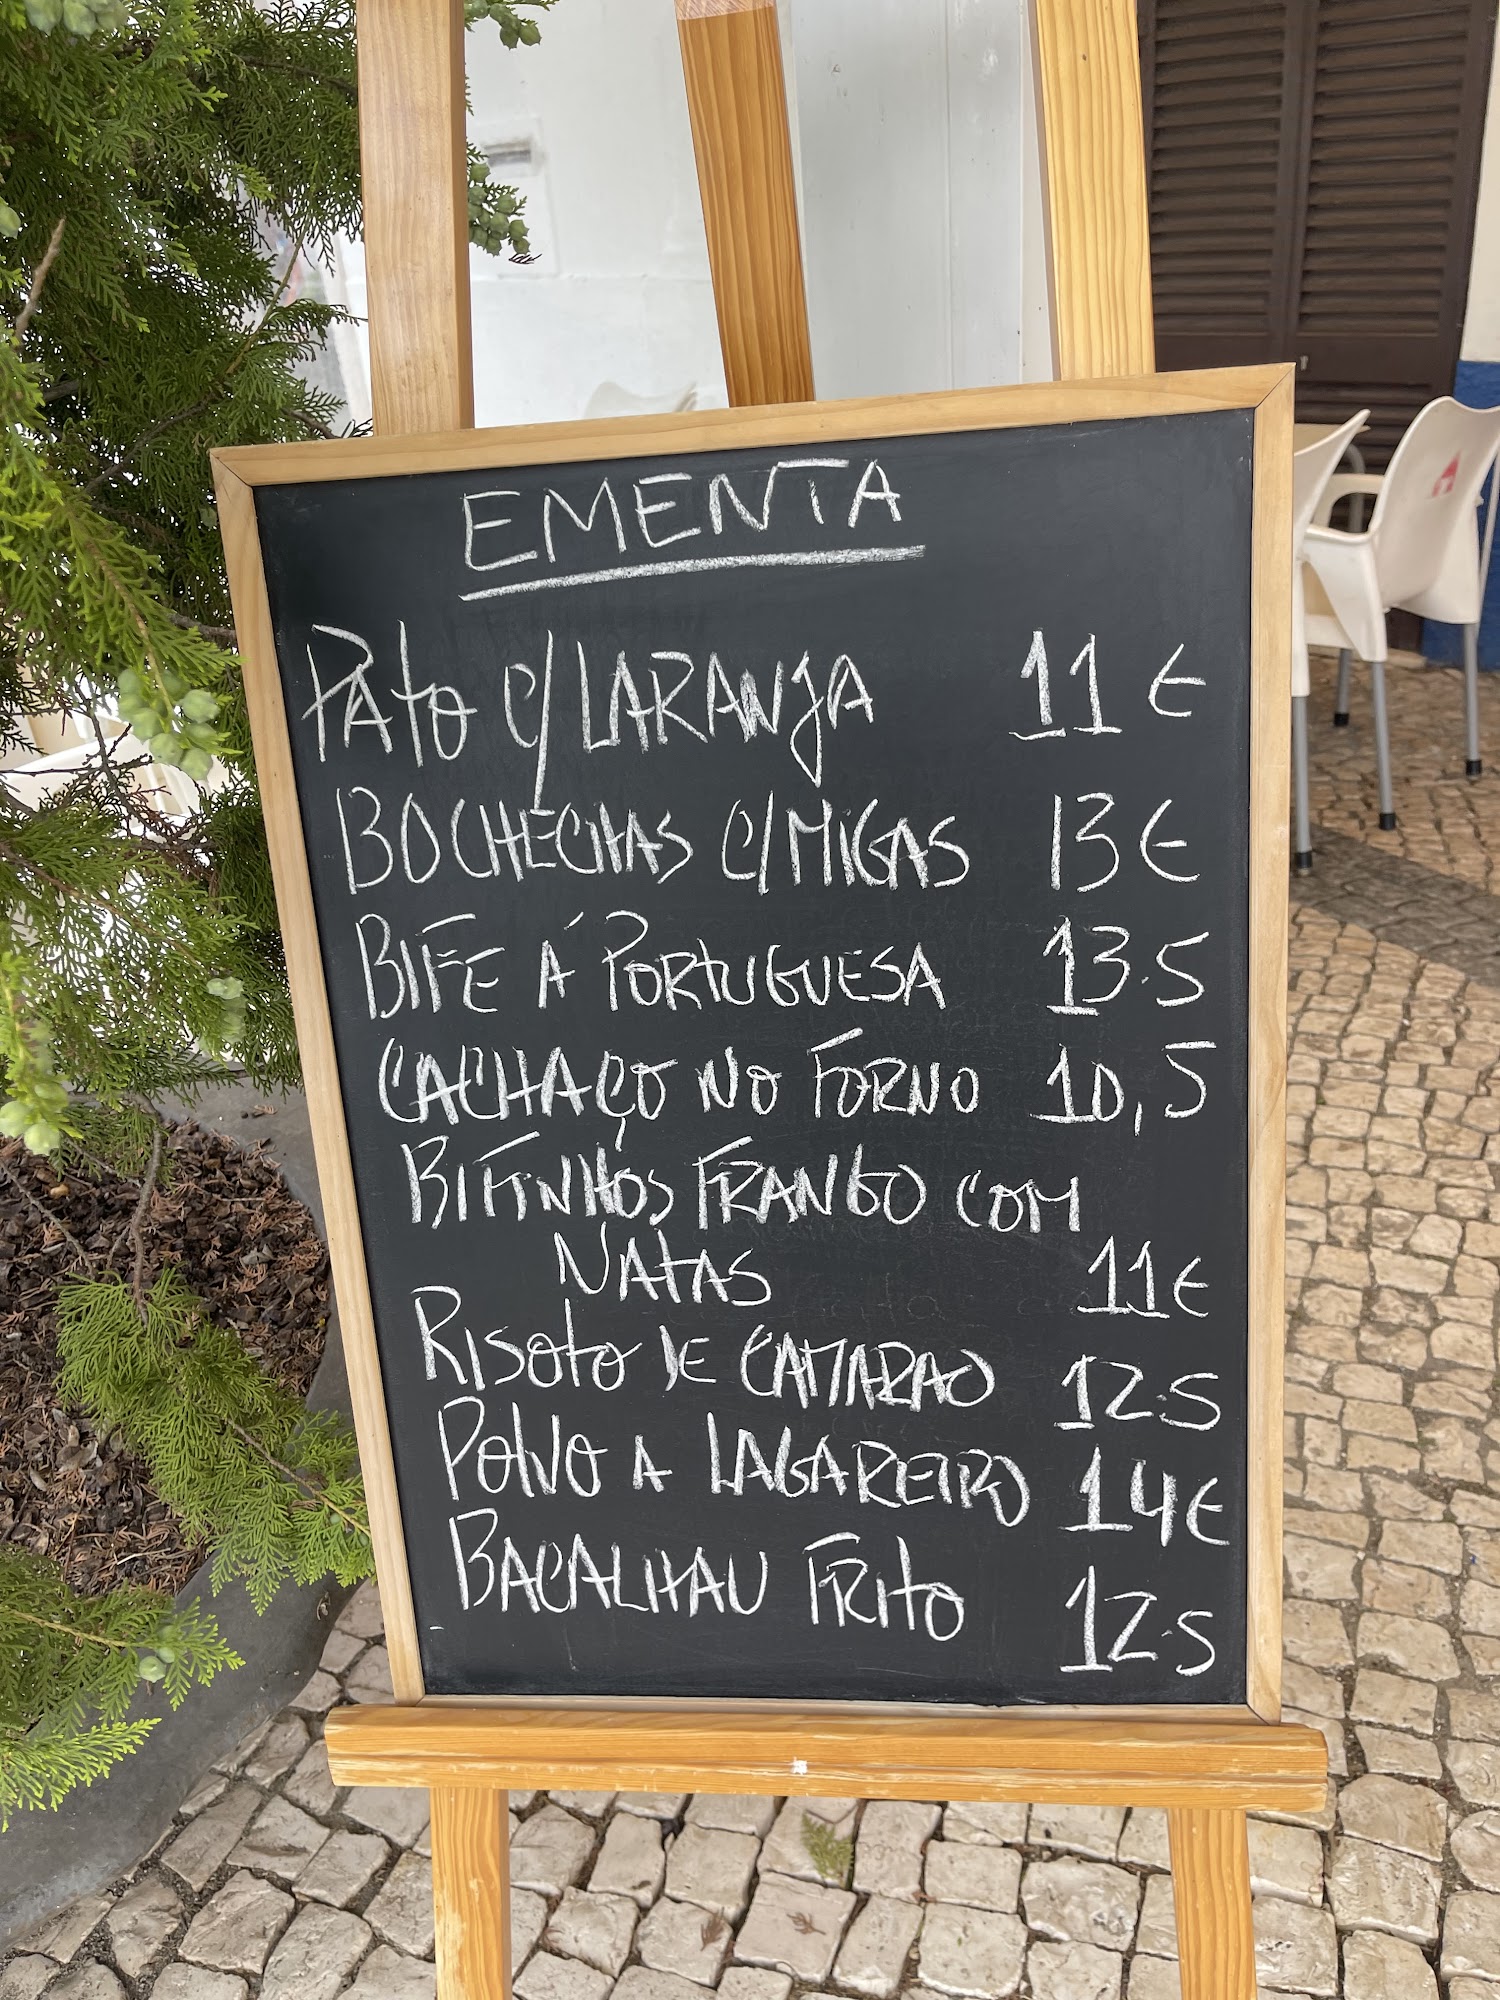 EMENTA
Pato c/ LARANJA 11 €
BOCHECHAS c/ MIGAS 13 €
BIFE Á PORTUGUESA 13.5
CACHAÇO NO FORNO 10,5
BIFINHOS FRANGO COM
NATAS 11€
RISOTO DE CAMARAO 12.5
POLVO A LAGAREIRO 14€
BACALHAU FRITO 12.5